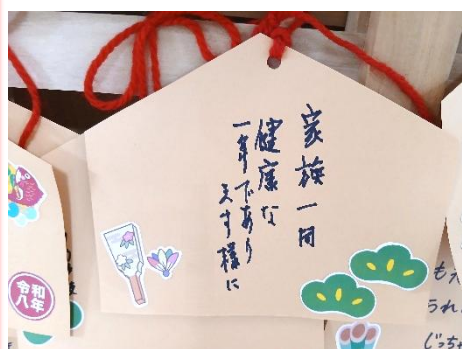 家族一同
健康な
一年であり
ます様に
令和
八年
うれ
じっち